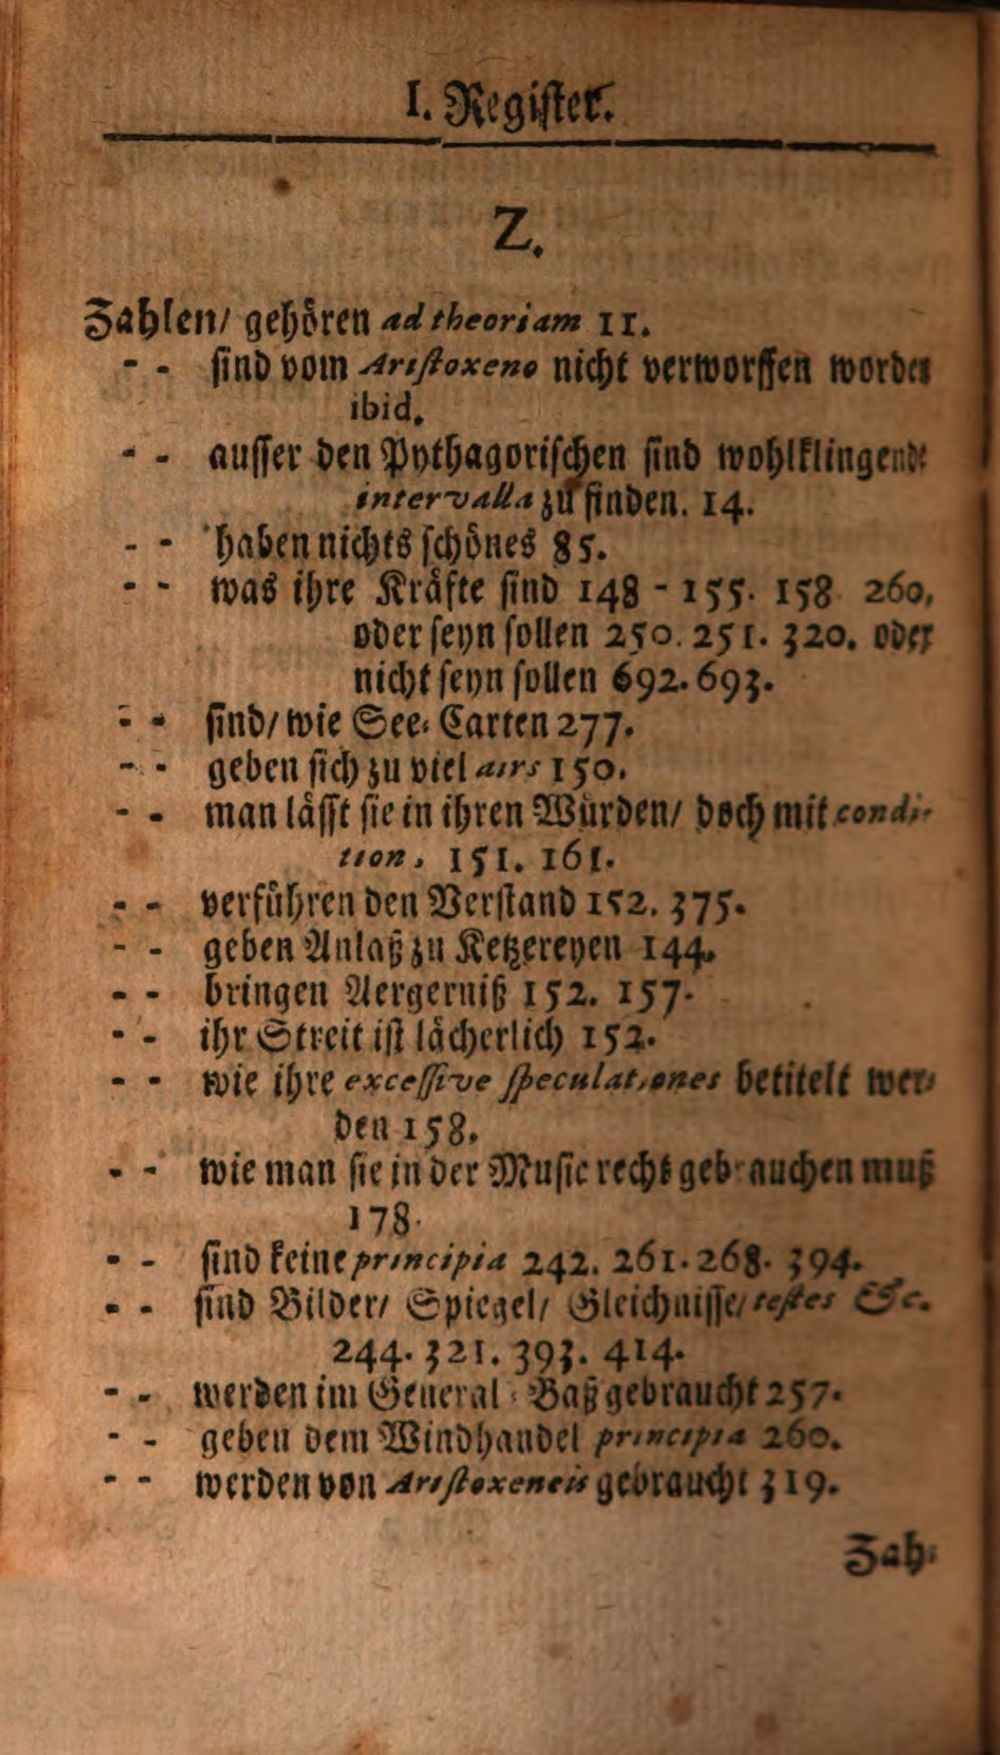 I. Register.
Z.
Zahlen/ gehören ad theoriam 11.
- - sind vom Aristoxeno nicht verworffen worden
ibid.
- - ausser den Pythagorischen sind wohlklingende
intervalla zu finden. 14.
- - haben nichts schönes 85.
- - was ihre Kräfte sind 148 - 155. 158. 260,
oder seyn sollen 250. 251. 320. oder
nicht seyn sollen 692. 693.
- - sind/ wie See-Carten 277.
- - geben sich zu viel airs 150.
- - man lässt sie in ihren Würden/ doch mit condi-
tion, 151. 161.
- - verführen den Verstand 152. 375.
- - geben Anlaß zu Ketzereyen 144.
- - bringen Aergerniß 152. 157.
- - ihr Streit ist lächerlich 152.
- - wie ihre excessive speculationes betitelt wer-
den 158.
- - wie man sie in der Music recht gebrauchen muß
178.
- - sind keine principia 242. 261. 268. 394.
- - sind Bilder/ Spiegel/ Gleichnisse/ testes &c.
244. 321. 393. 414.
- - werden im General-Baß gebraucht 257.
- - geben dem Windhandel principia 260.
- - werden von Aristoxeneis gebraucht 319.
Zah-